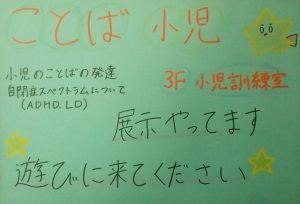 ことば 小児
小児のことばの発達
自閉症スペクトラムについて
(ADHD. LD)
3F 小児訓練室
展示やってます
遊びに来てください